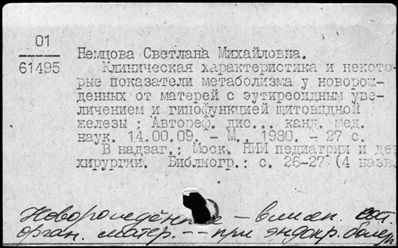 01
61495
Немцова Светлана Михайловна.
Клиническая характеристика и некото-
рые показатели метаболизма у новорож-
денных от матерей с эутиреоидным уве-
личением и гипофункцией щитовидной
железы : Автореф. дис... канд. мед.
наук. 14.00.09. - М., 1980. - 27 с.
В надзаг.: Моск. НИИ педиатрии и дет
хирургии. Библиогр.: с. 26-27 (4 назв
Новорождённые - влиян.
орган. матер. -- при эндокр. болезн.